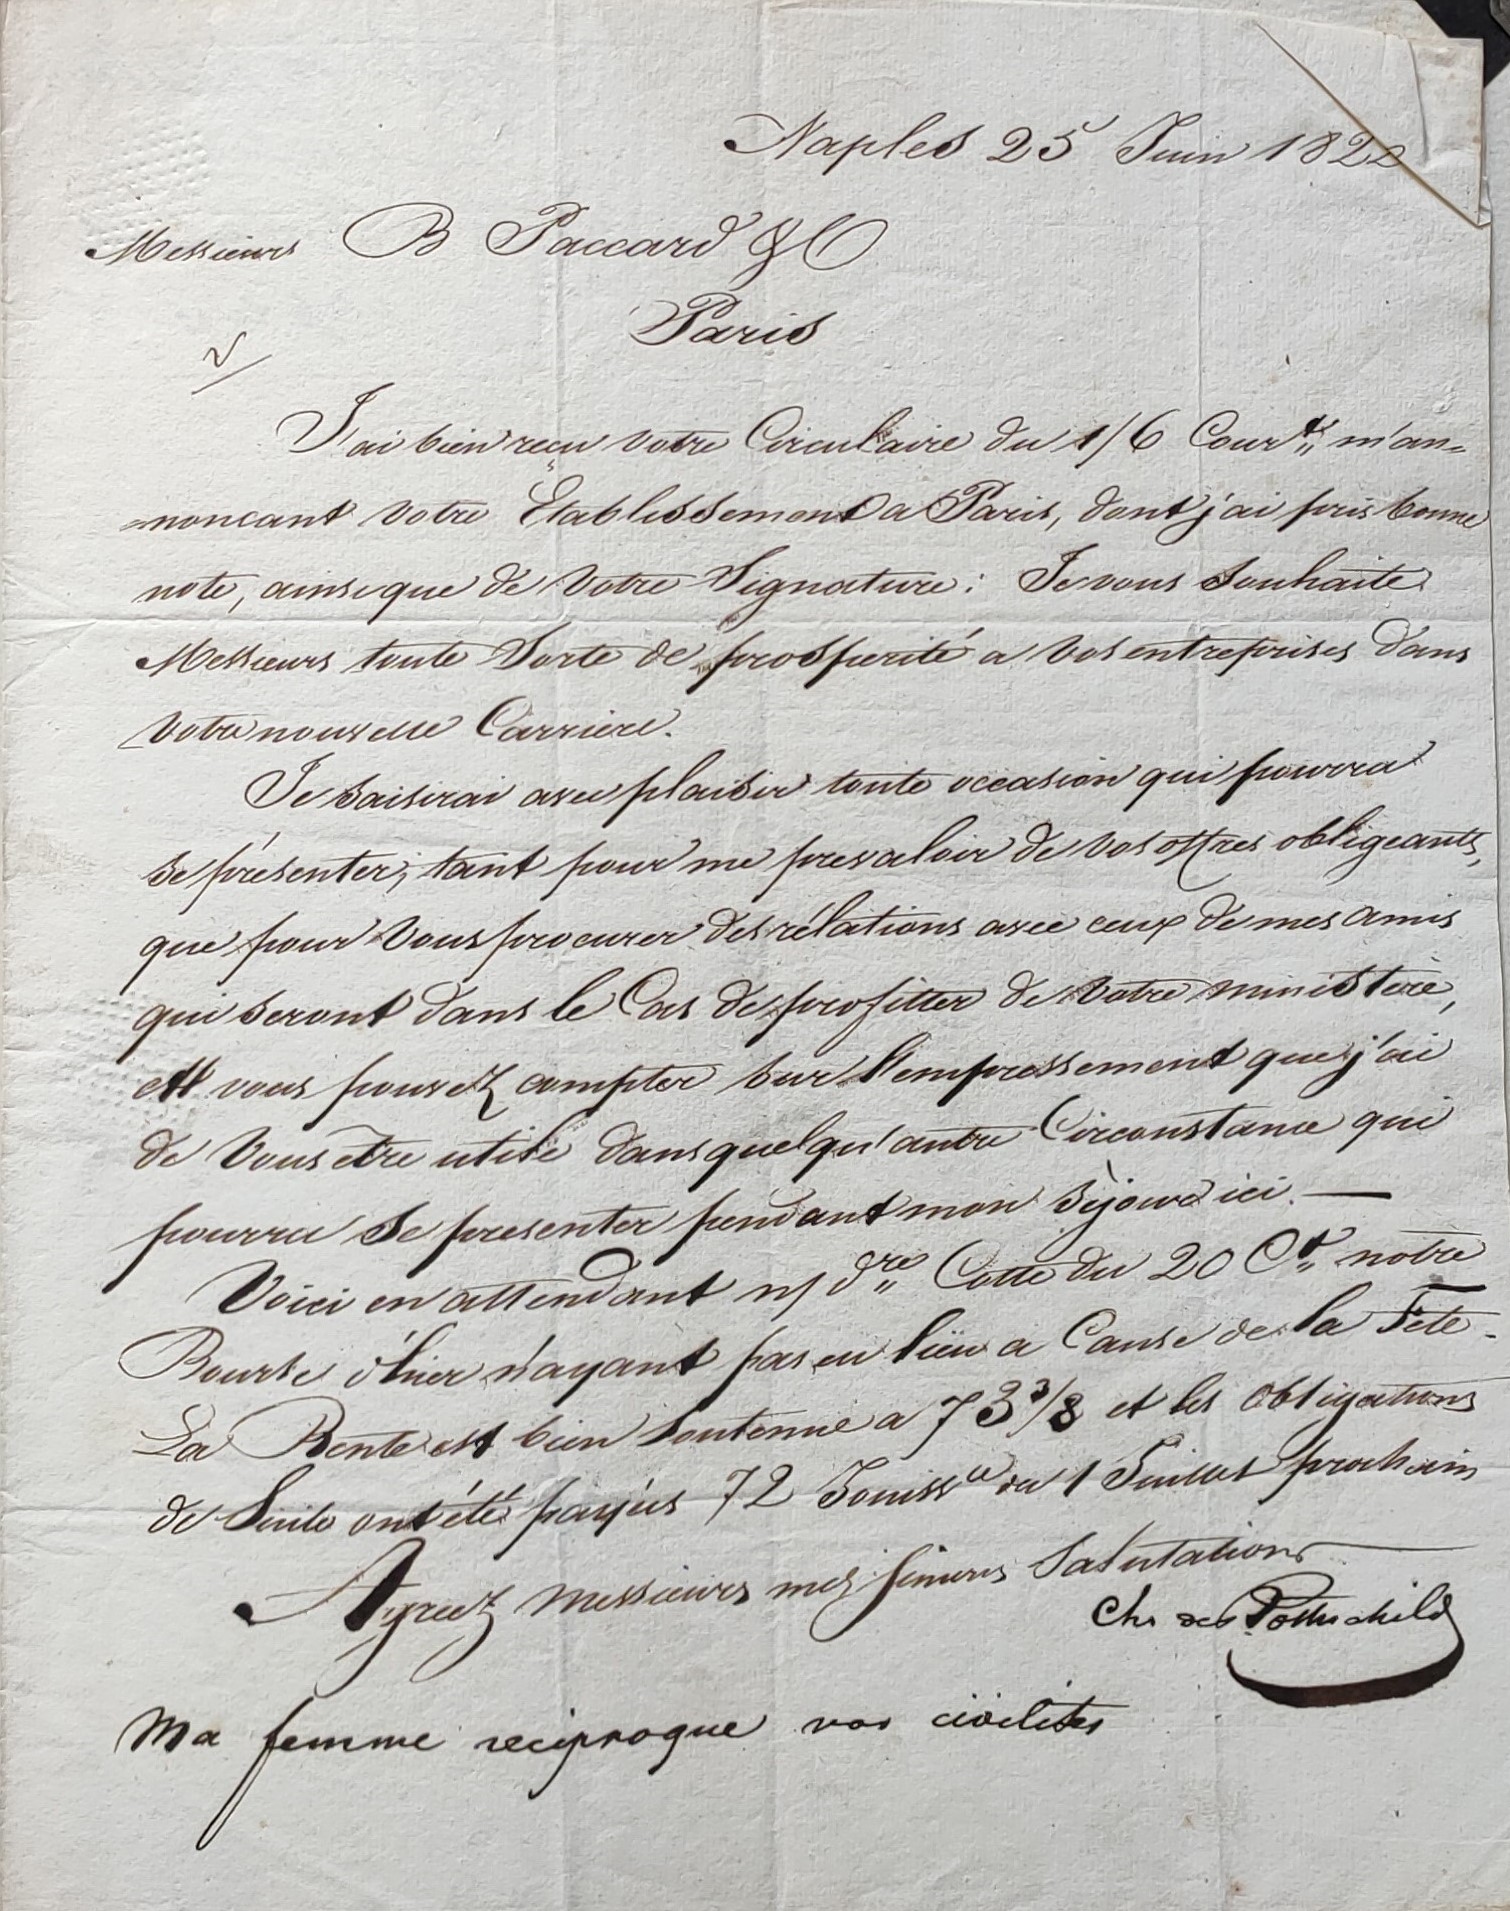 Naples 25 Juin 1822
Messieurs B Paccard & C
Paris
J'ai bien reçu votre Circulaire du 1/6 Cour.t m'an=
=noncant votre Etablissement a Paris, dont j'ai pris bonne
note, ainsi que de votre Signature: Je vous souhaite
Messieurs toute Sorte de prosperité a vos entreprises dans
votre nouvelle Carriere.
Je saisirai avec plaisir toute occasion qui pourra
se présenter, tant pour me prevaloir de vos offres obligeants,
que pour vous procurer des rélations avec ceux de mes amis
qui seront dans le Cas de profitter de votre ministère,
et vous pouvez compter sur l'empressement que j'ai
de vous etre utile dans quelqu'autre Circonstance qui
pourra se presenter pendant mon séjour ici. —
Voici en attendant n/ dre Cotte du 20 Ct notre
Bourse d'hier n'ayant pas eu lieu a Cause de la Fête.
La Rente est bien soutenue a 73 3/8 et les obligations
de Sicile ont été payées 72 Jouissce du 1 Juillet prochain
Agreez Messieurs mes sinceres Salutations
Ch de Rothschild
Ma femme reciproque vos civilités